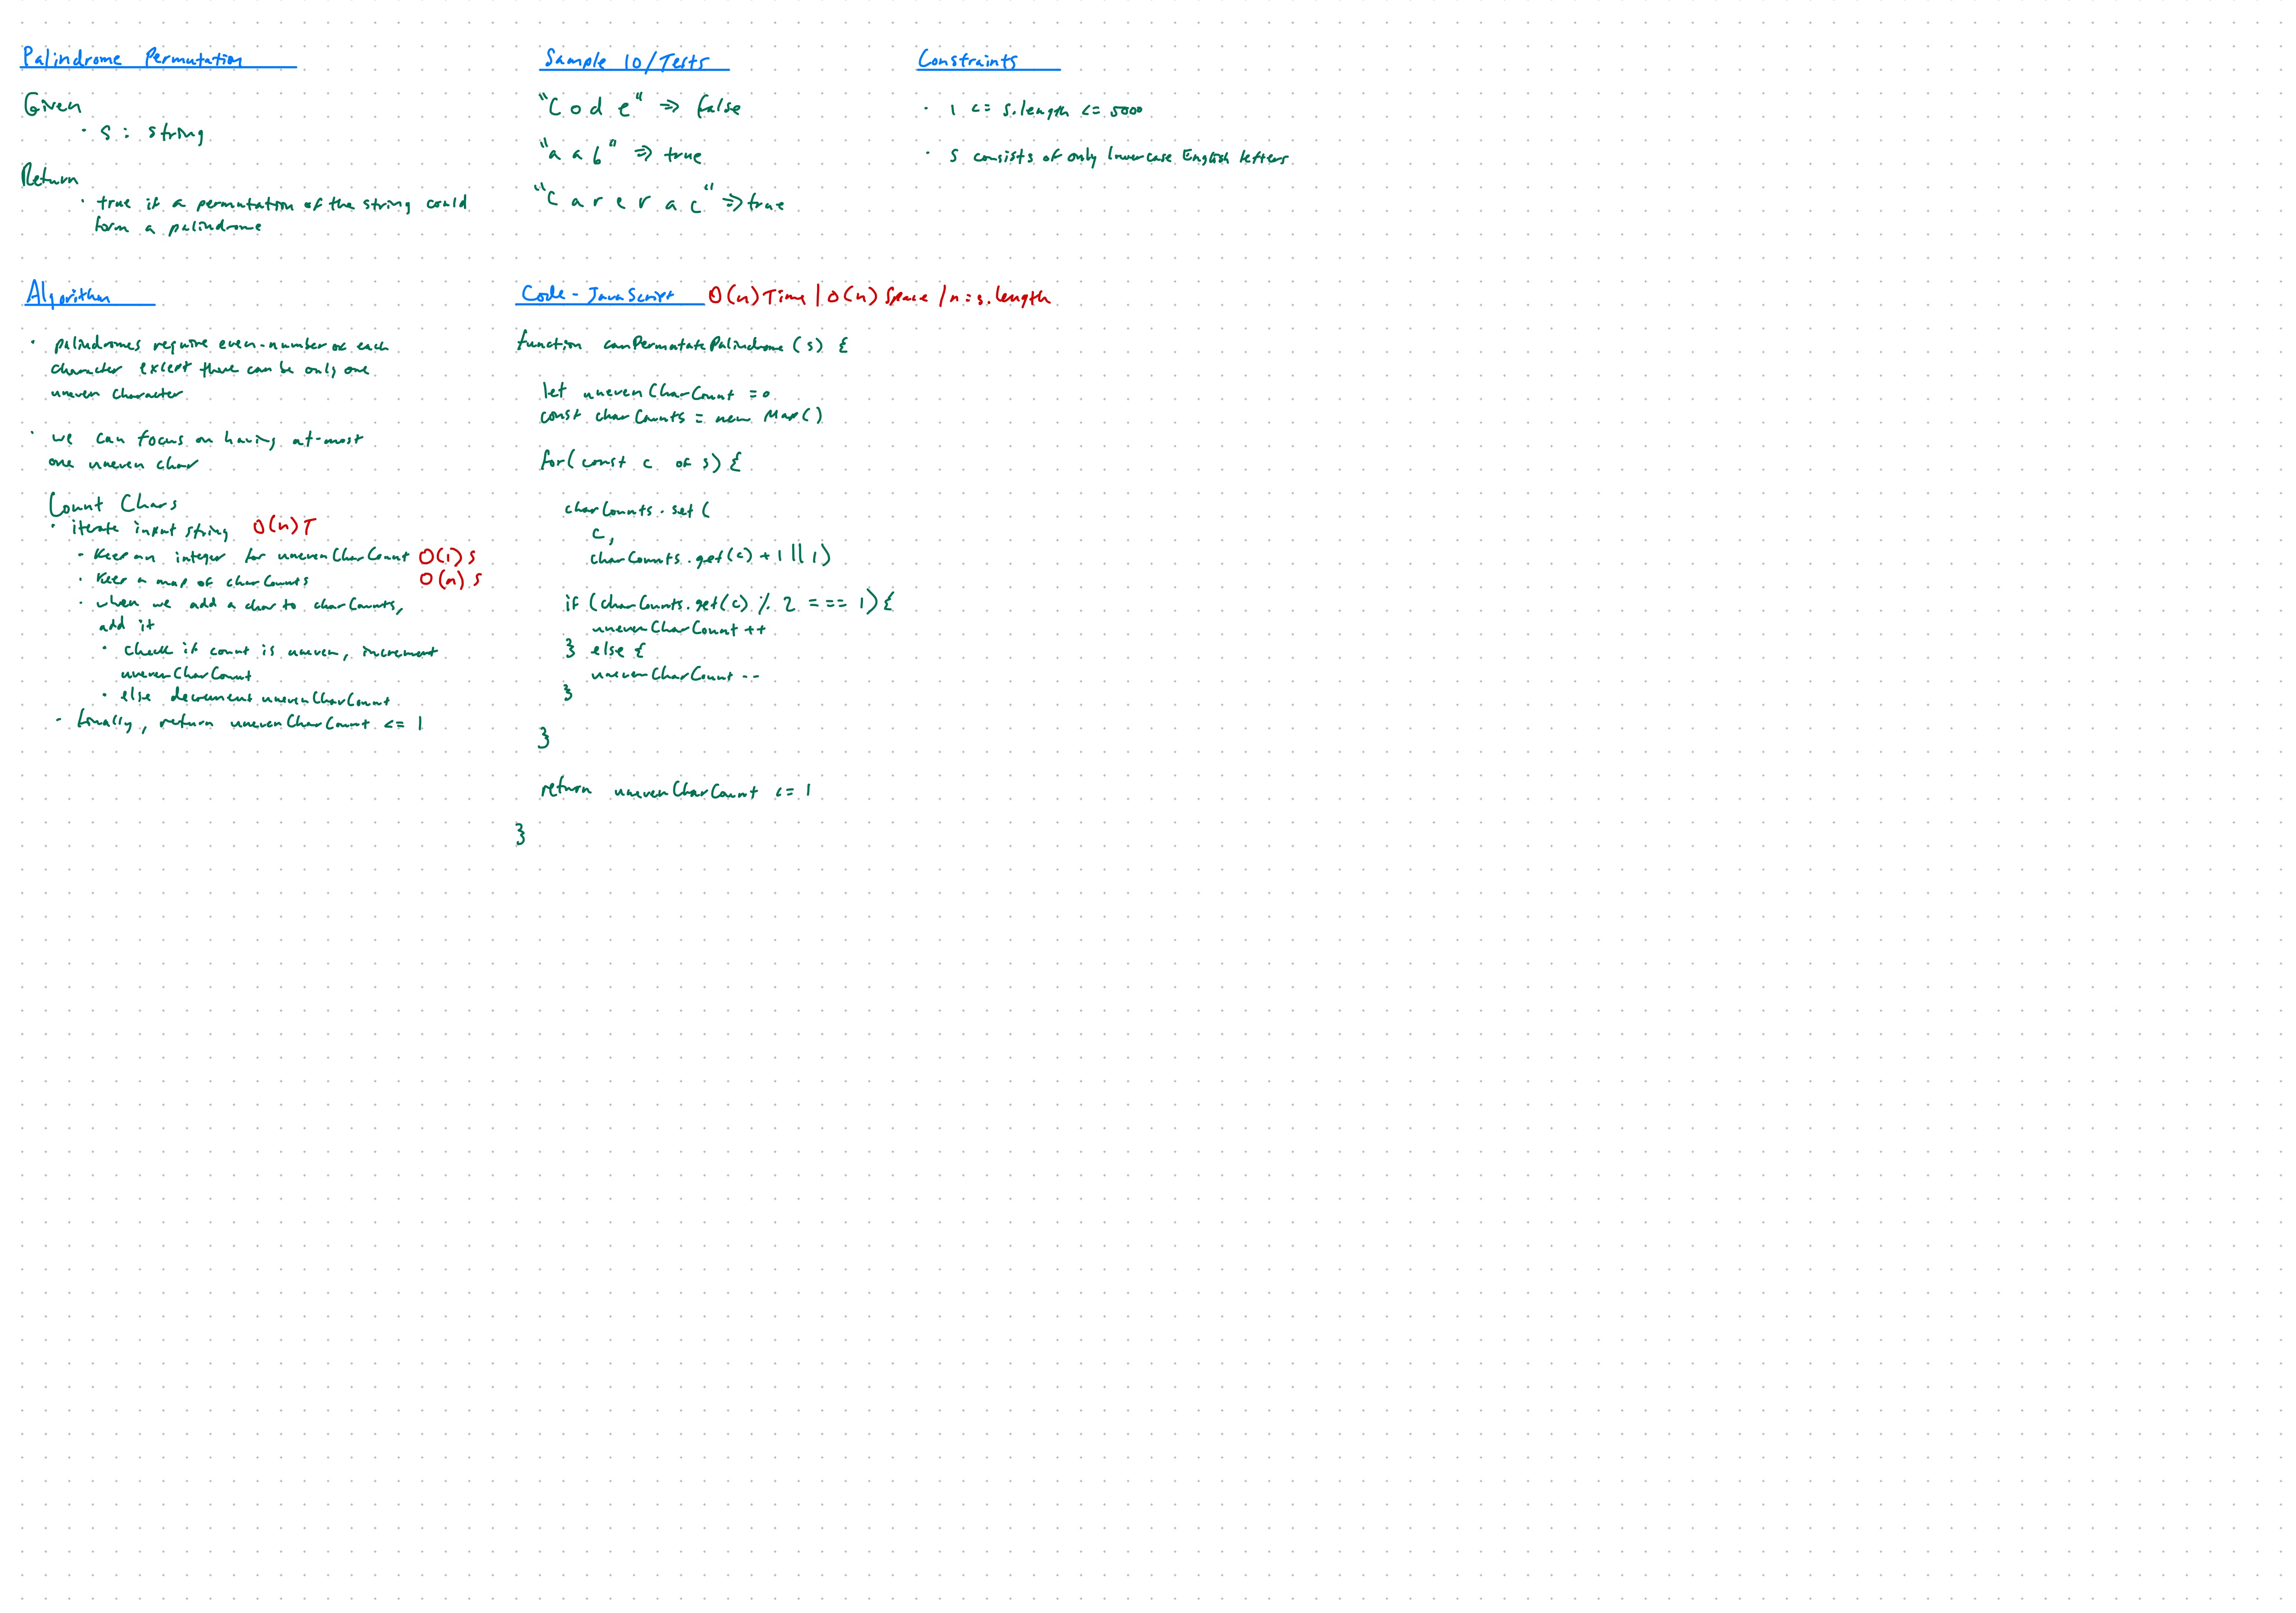 Palindrome Permutation
Given
· s : string
Return
· true if a permutation of the string could
form a palindrome
Sample IO/Tests
"C o d e" => false
"a a b" => true
"C a r e r a c" => true
Constraints
· 1 <= s.length <= 5000
· s consists of only lowercase English letters
Algorithm
· palindromes require even-number of each
character except there can be only one
uneven character
· we can focus on having at-most
one uneven char
Count Chars
· iterate input string O(n) T
- Keep an integer for unevenCharCount O(1) S
· Keep a map of charCounts O(n) S
· when we add a char to charCounts,
add it
· check if count is uneven, increment
unevenCharCount
· else decrement unevenCharCount
- finally, return unevenCharCount <= 1
Code - JavaScript O(n) Time | O(n) Space / n = s.length
function canPermutatePalindrome (s) {
let unevenCharCount = 0
const charCounts = new Map()
for( const c of s) {
charCounts.set (
c,
charCounts.get(c) + 1 || 1)
if (charCounts.get(c) % 2 === 1) {
unevenCharCount ++
} else {
unevenCharCount --
}
}
return unevenCharCount <= 1
}